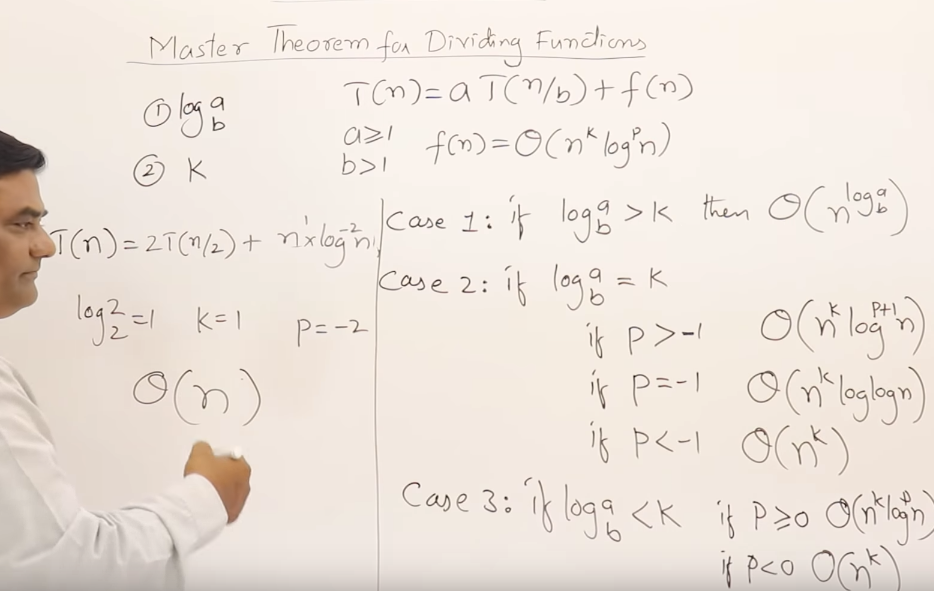 Master Theorem for Dividing Functions
① log_b^a
② K
T(n)=aT(n/b)+f(n)
a≥1
b>1
f(n)=Θ(n^k log^p n)
T(n)=2T(n/2)+ n^1×log^-2 n
log_2^2=1 K=1 P=-2
Θ(n)
Case 1: if log_b^a >K then Θ(n^log_b^a)
Case 2: if log_b^a = K
if P>-1 Θ(n^k log^p+1 n)
if P=-1 Θ(n^k loglogn)
if P<-1 Θ(n^k)
Case 3: if log_b^a <K if P≥0 Θ(n^k log^p n)
if P<0 Θ(n^k)